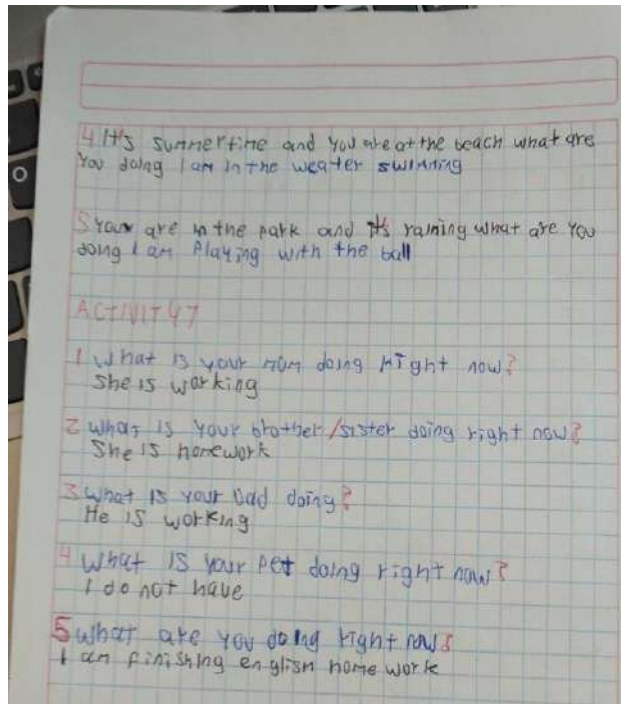 4 It's summertime and you are at the beach what are
you doing I am in the weater swimming
5 your are in the park and it's raining what are you
doing I am Playing with the ball
ACTIVITY 7
1 What is your mom doing right now?
She is working
2 what is your brother/sister doing right now?
She is homework
3 what is your Dad doing?
He is working
4 What is your pet doing right now?
I do not have
5 what are you doing right now?
I am finishing english home work